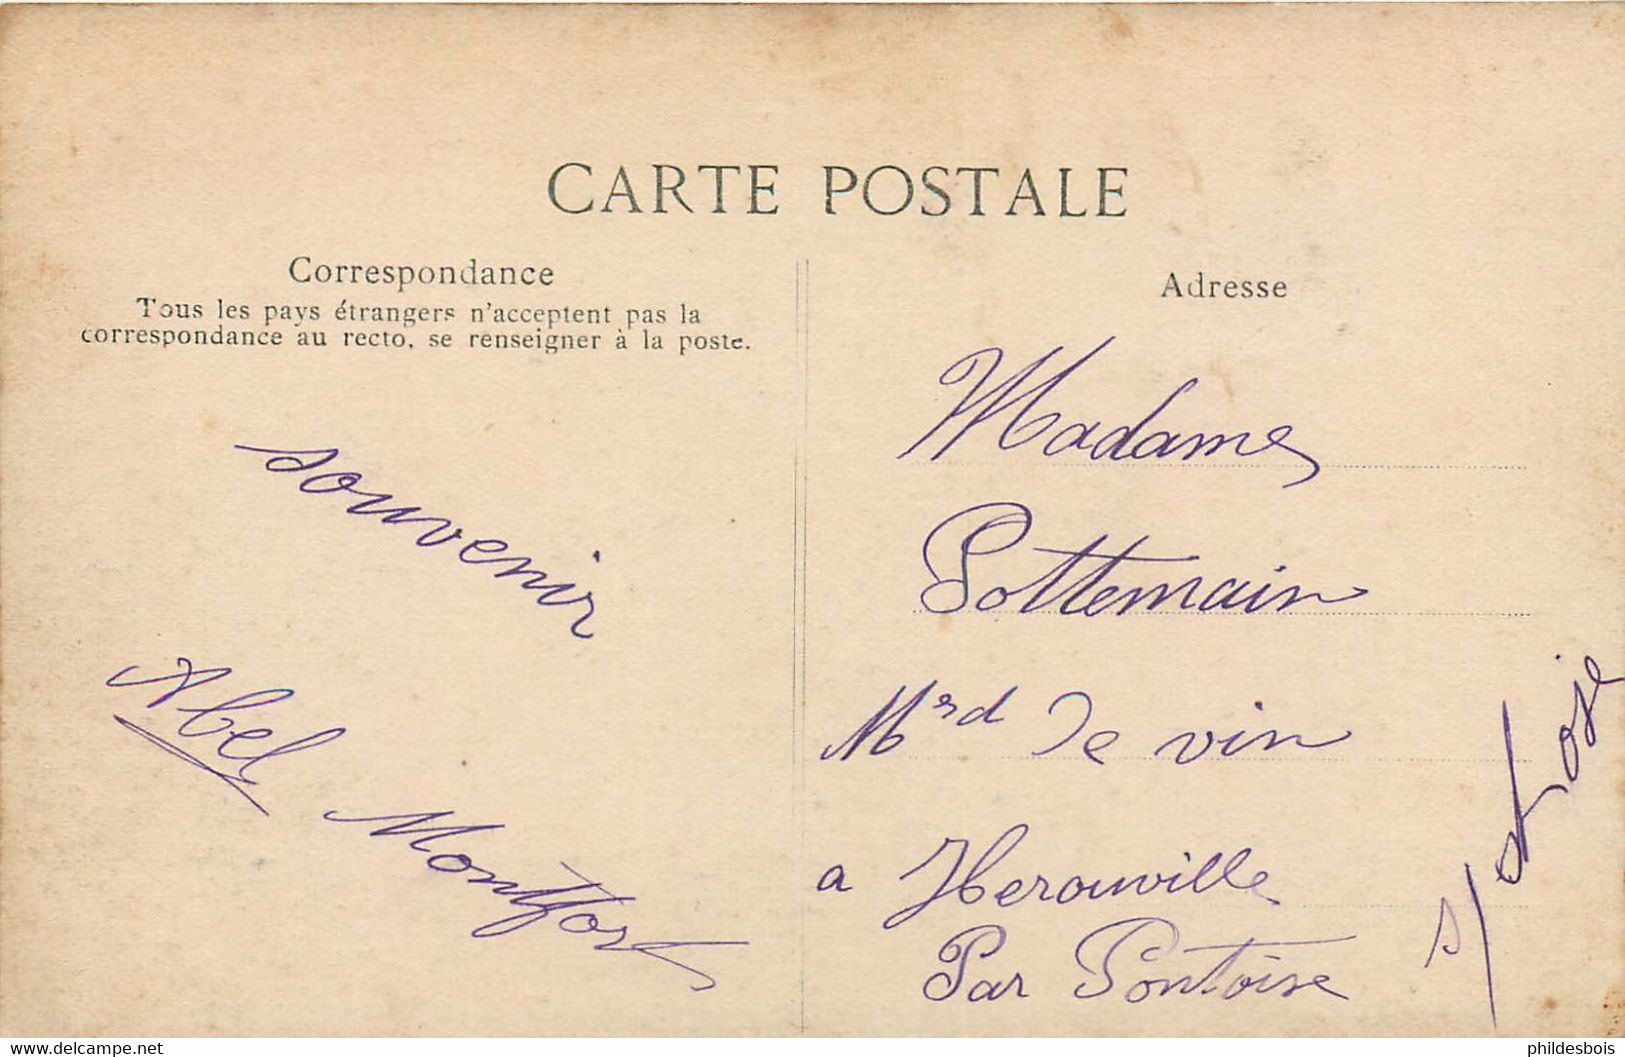 CARTE POSTALE
Correspondance
Tous les pays étrangers n'acceptent pas la
correspondance au recto, se renseigner à la poste.
souvenir
Abel Montfort
Adresse
Madame
Pottemain
Mrd de vin
a Herouville
Par Pontoise
s/ Oise
www.delcampe.net
phildesbois